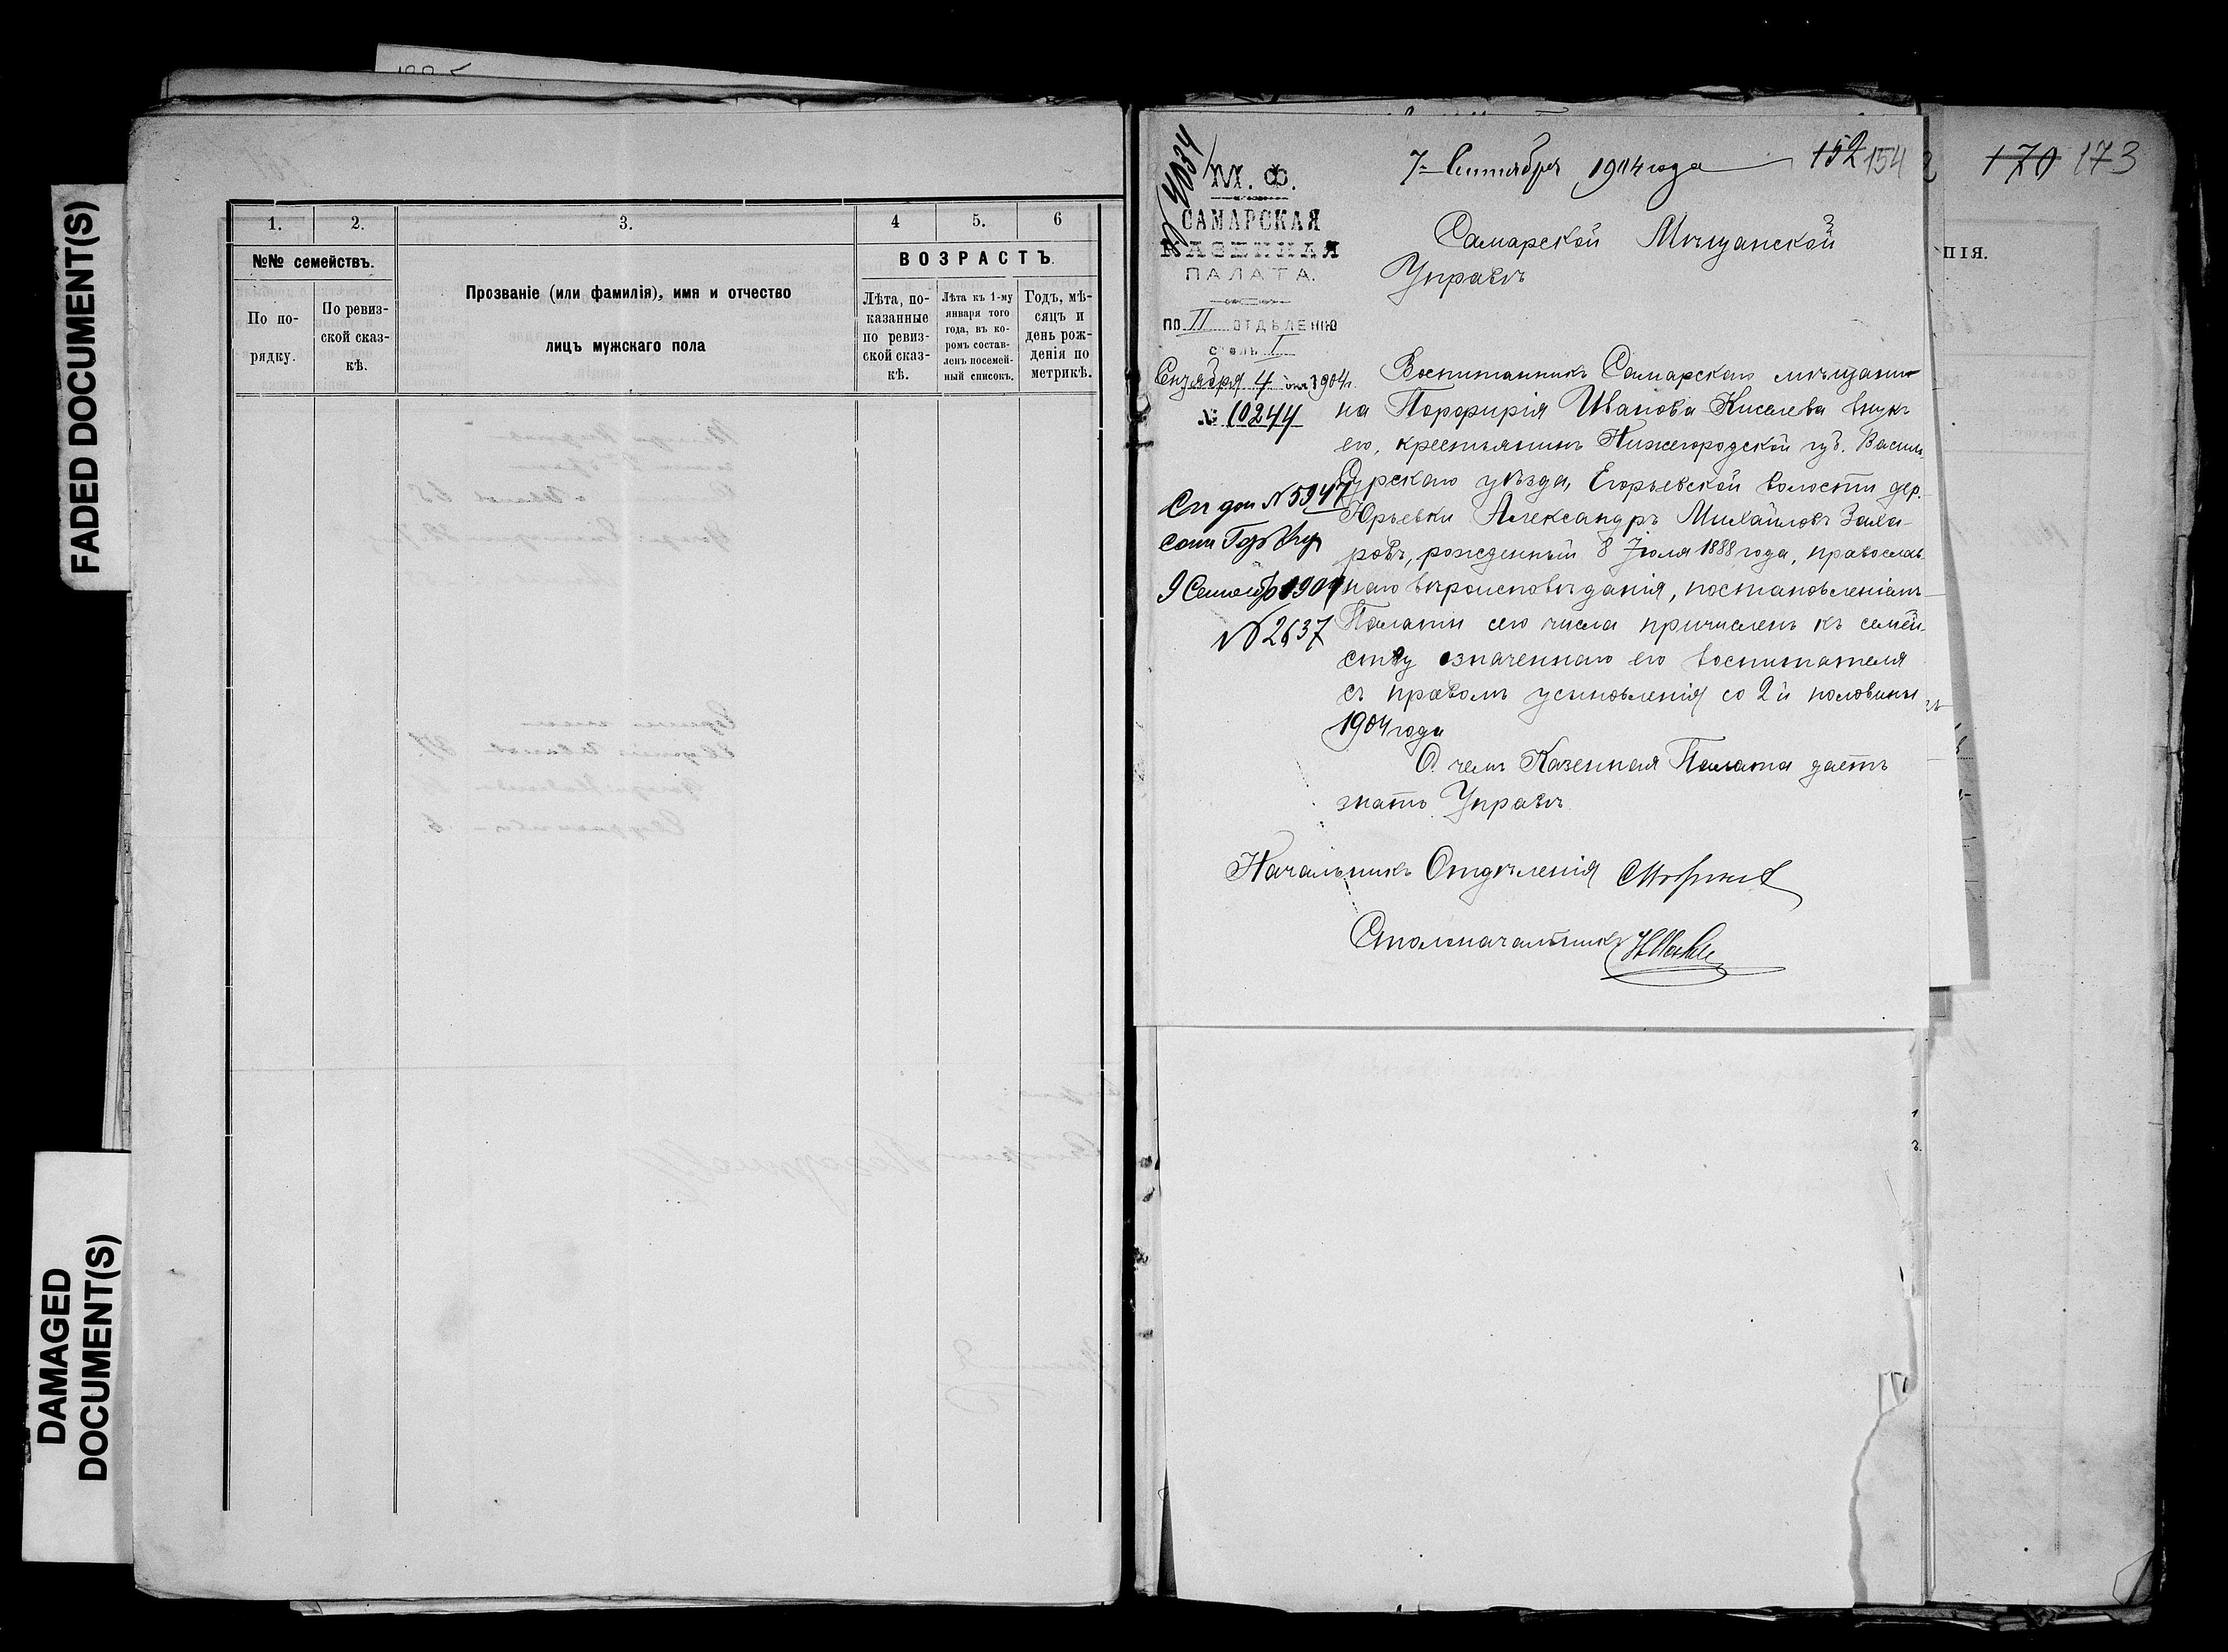 FADED DOCUMENT(S)
DAMAGED
DOCUMENT(S)
1. 2. 3. 4 5. 6
№№ семействъ.
По по-
рядку.
По ревиз-
ской сказ-
кѣ.
Прозваніе (или фамилія), имя и отчество
лицъ мужскаго пола
ВОЗРАСТЪ.
Лѣта, по-
казанные
по ревиз-
ской сказ-
кѣ.
Лѣта къ 1-му
января того
года, въ ко-
ромъ состав-
ленъ посемей-
ный списокъ.
Годъ, мѣ-
сяцъ и
день рож-
денія по
метрикѣ.
4034
М. Ф.
САМАРСКАЯ
КАЗЕННАЯ
ПАЛАТА.
по II ОТДѢЛЕНІЮ
столъ I
Сентября 4 дня 1904 г.
№ 10244
№ 5947
9 1904
№ 2637
7 Сентября 1904 года
152 154
Самарской Мѣщанской
Управѣ
Воспитанникъ Самарскаго мѣщани-
на Порфирія Иванова Киселева внукъ
его, крестьянинъ Нижегородской губ. Василь-
Сурскаго уѣзда, Егорьевской волости дер.
Юрьевки Александръ Михайловъ Заха-
ровъ, рожденный 8 Іюля 1888 года, православ-
наго вѣроисповѣданія, постановленіемъ
Палаты сего числа причисленъ къ семей-
ству означеннаго его воспитателя
съ правомъ усыновленія со 2й половины
1904 года
О чемъ Казенная Палата даетъ
знать Управѣ.
Начальникъ Отдѣленія
Столоначальникъ
170 173
ПІЯ.